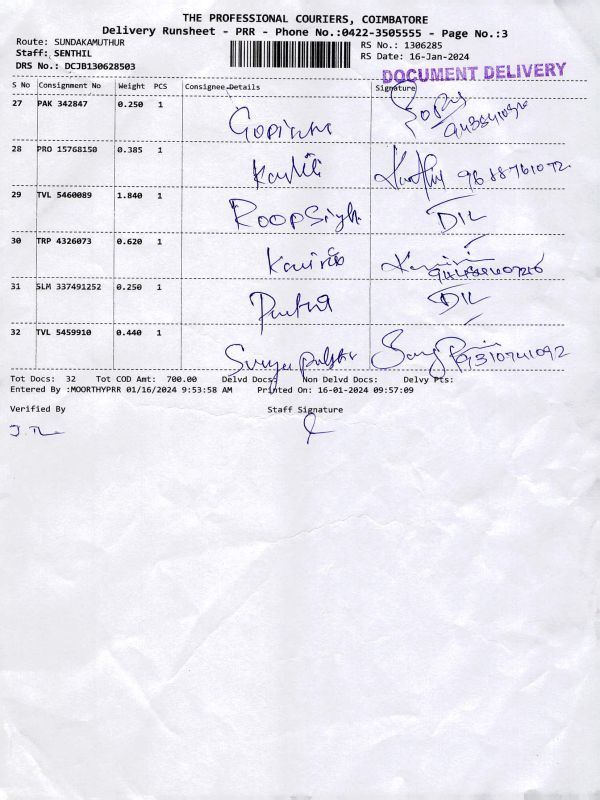 THE PROFESSIONAL COURIERS, COIMBATORE
Delivery Runsheet - PRR - Phone No.:0422-3505555 - Page No.:3
Route: SUNDAKAMUTHUR RS No.: 1306285
Staff: SENTHIL RS Date: 16-Jan-2024
DRS No.: DCJB130628503
DOCUMENT DELIVERY
S No Consignment No Weight PCS Consignee Details Signature
27 PAK 342847 0.250 1
28 PRO 15768150 0.385 1
29 TVL 5460089 1.840 1 RoopSigh DIL
30 TRP 4326073 0.620 1
31 SLM 337491252 0.250 1 DIL
32 TVL 5459910 0.440 1 9310741092
Tot Docs: 32 Tot COD Amt: 700.00 Delvd Docs: Non Delvd Docs: Delvy Pts:
Entered By :MOORTHYPRR 01/16/2024 9:53:58 AM Printed On: 16-01-2024 09:57:09
Verified By Staff Signature